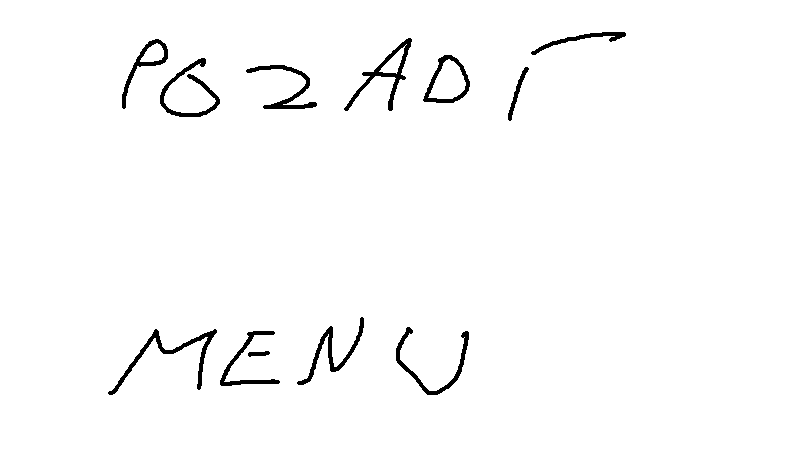 POZADÍ
MENU